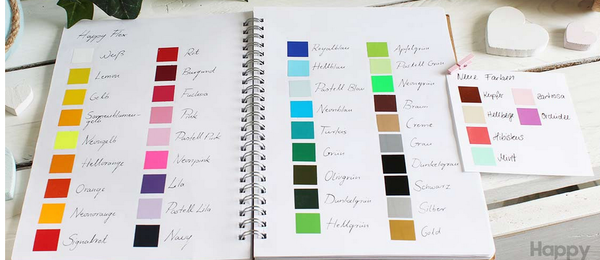 Happy Flex
Weiß
Lemon
Gelb
Sonnenblumen-
gelb
Neongelb
Hellorange
Orange
Neonorange
Signalrot
Rot
Burgund
Fuchsia
Pink
Pastell Pink
Neonpink
Lila
Pastell Lila
Navy
Royalblau
Hellblau
Pastell Blau
Neonblau
Türkis
Grün
Olivgrün
Dunkelgrün
Hellgrün
Apfelgrün
Pastell Grün
Neongrün
Braun
Creme
Grau
Dunkelgrau
Schwarz
Silber
Gold
Neue Farben
Kupfer
Hellbeige
Hibiskus
Mint
Barbarossa
Orchidee
Happy